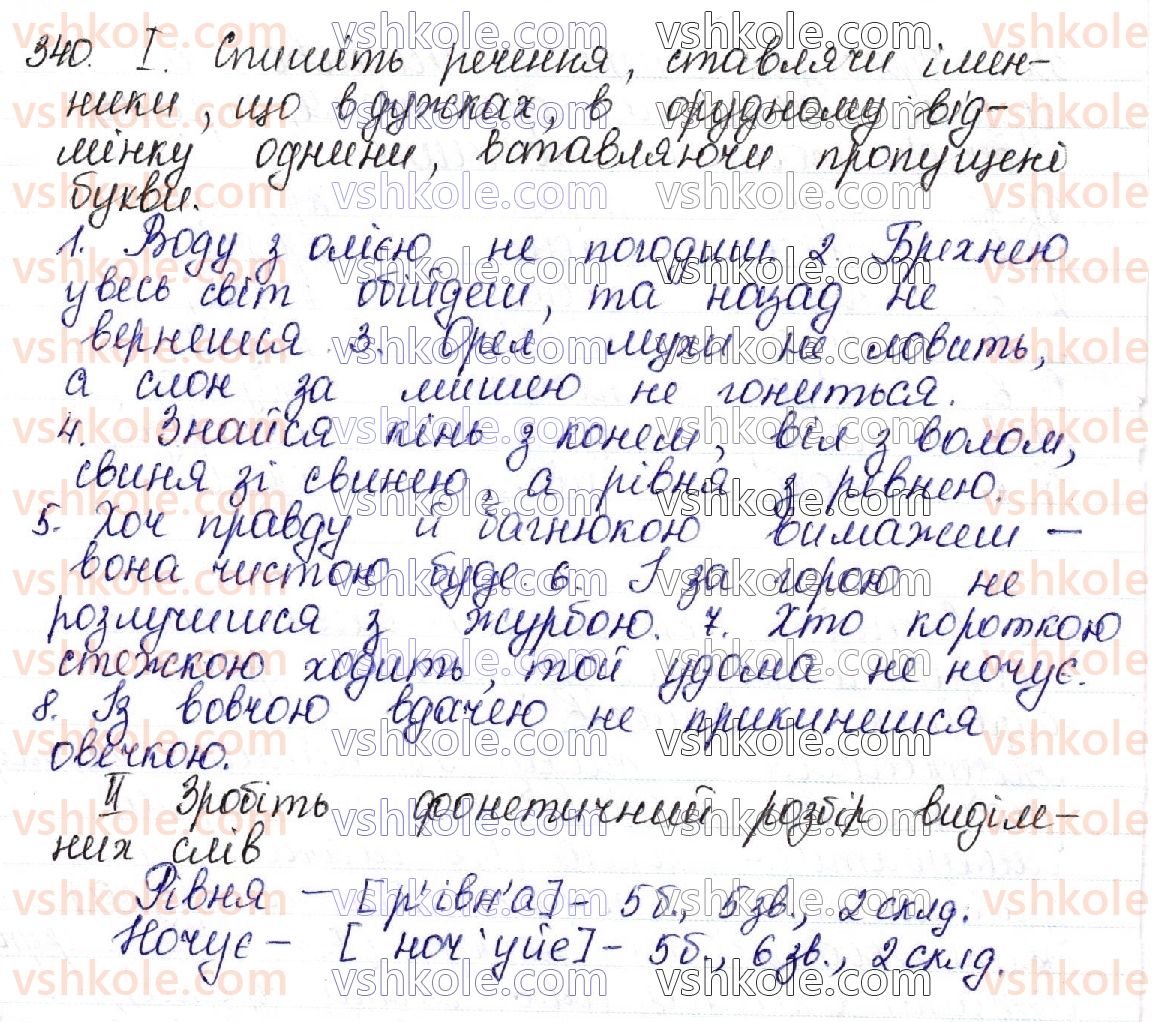 340. I. Спишіть речення, ставлячи імен-
ники, що в дужках, в орудному від-
мінку однини, вставляючи пропущені
букви.
1. Воду з олією не погодиш. 2. Брехнею
увесь світ обійдеш, та назад не
вернешся 3. Орел мухи не ловить,
а слон за мишею не гониться.
4. Знайся кінь з конем, віл з волом,
свиня зі свинею, а рівня з рівнею.
5. Хоч правду й багнюкою вимажеш –
вона чистою буде. 6. І за горою не
розлучишся з журбою. 7. Хто короткою
стежкою ходить, той удома не ночує.
8. Із вовчою вдачею не прикинешся
овечкою.
II Зробіть фонетичний розбір виділе-
них слів
Рівня – [р'івн'а] – 5б., 5зв., 2склд.
Ночує – [ноч'уйе] – 5б., 6зв., 2склд.